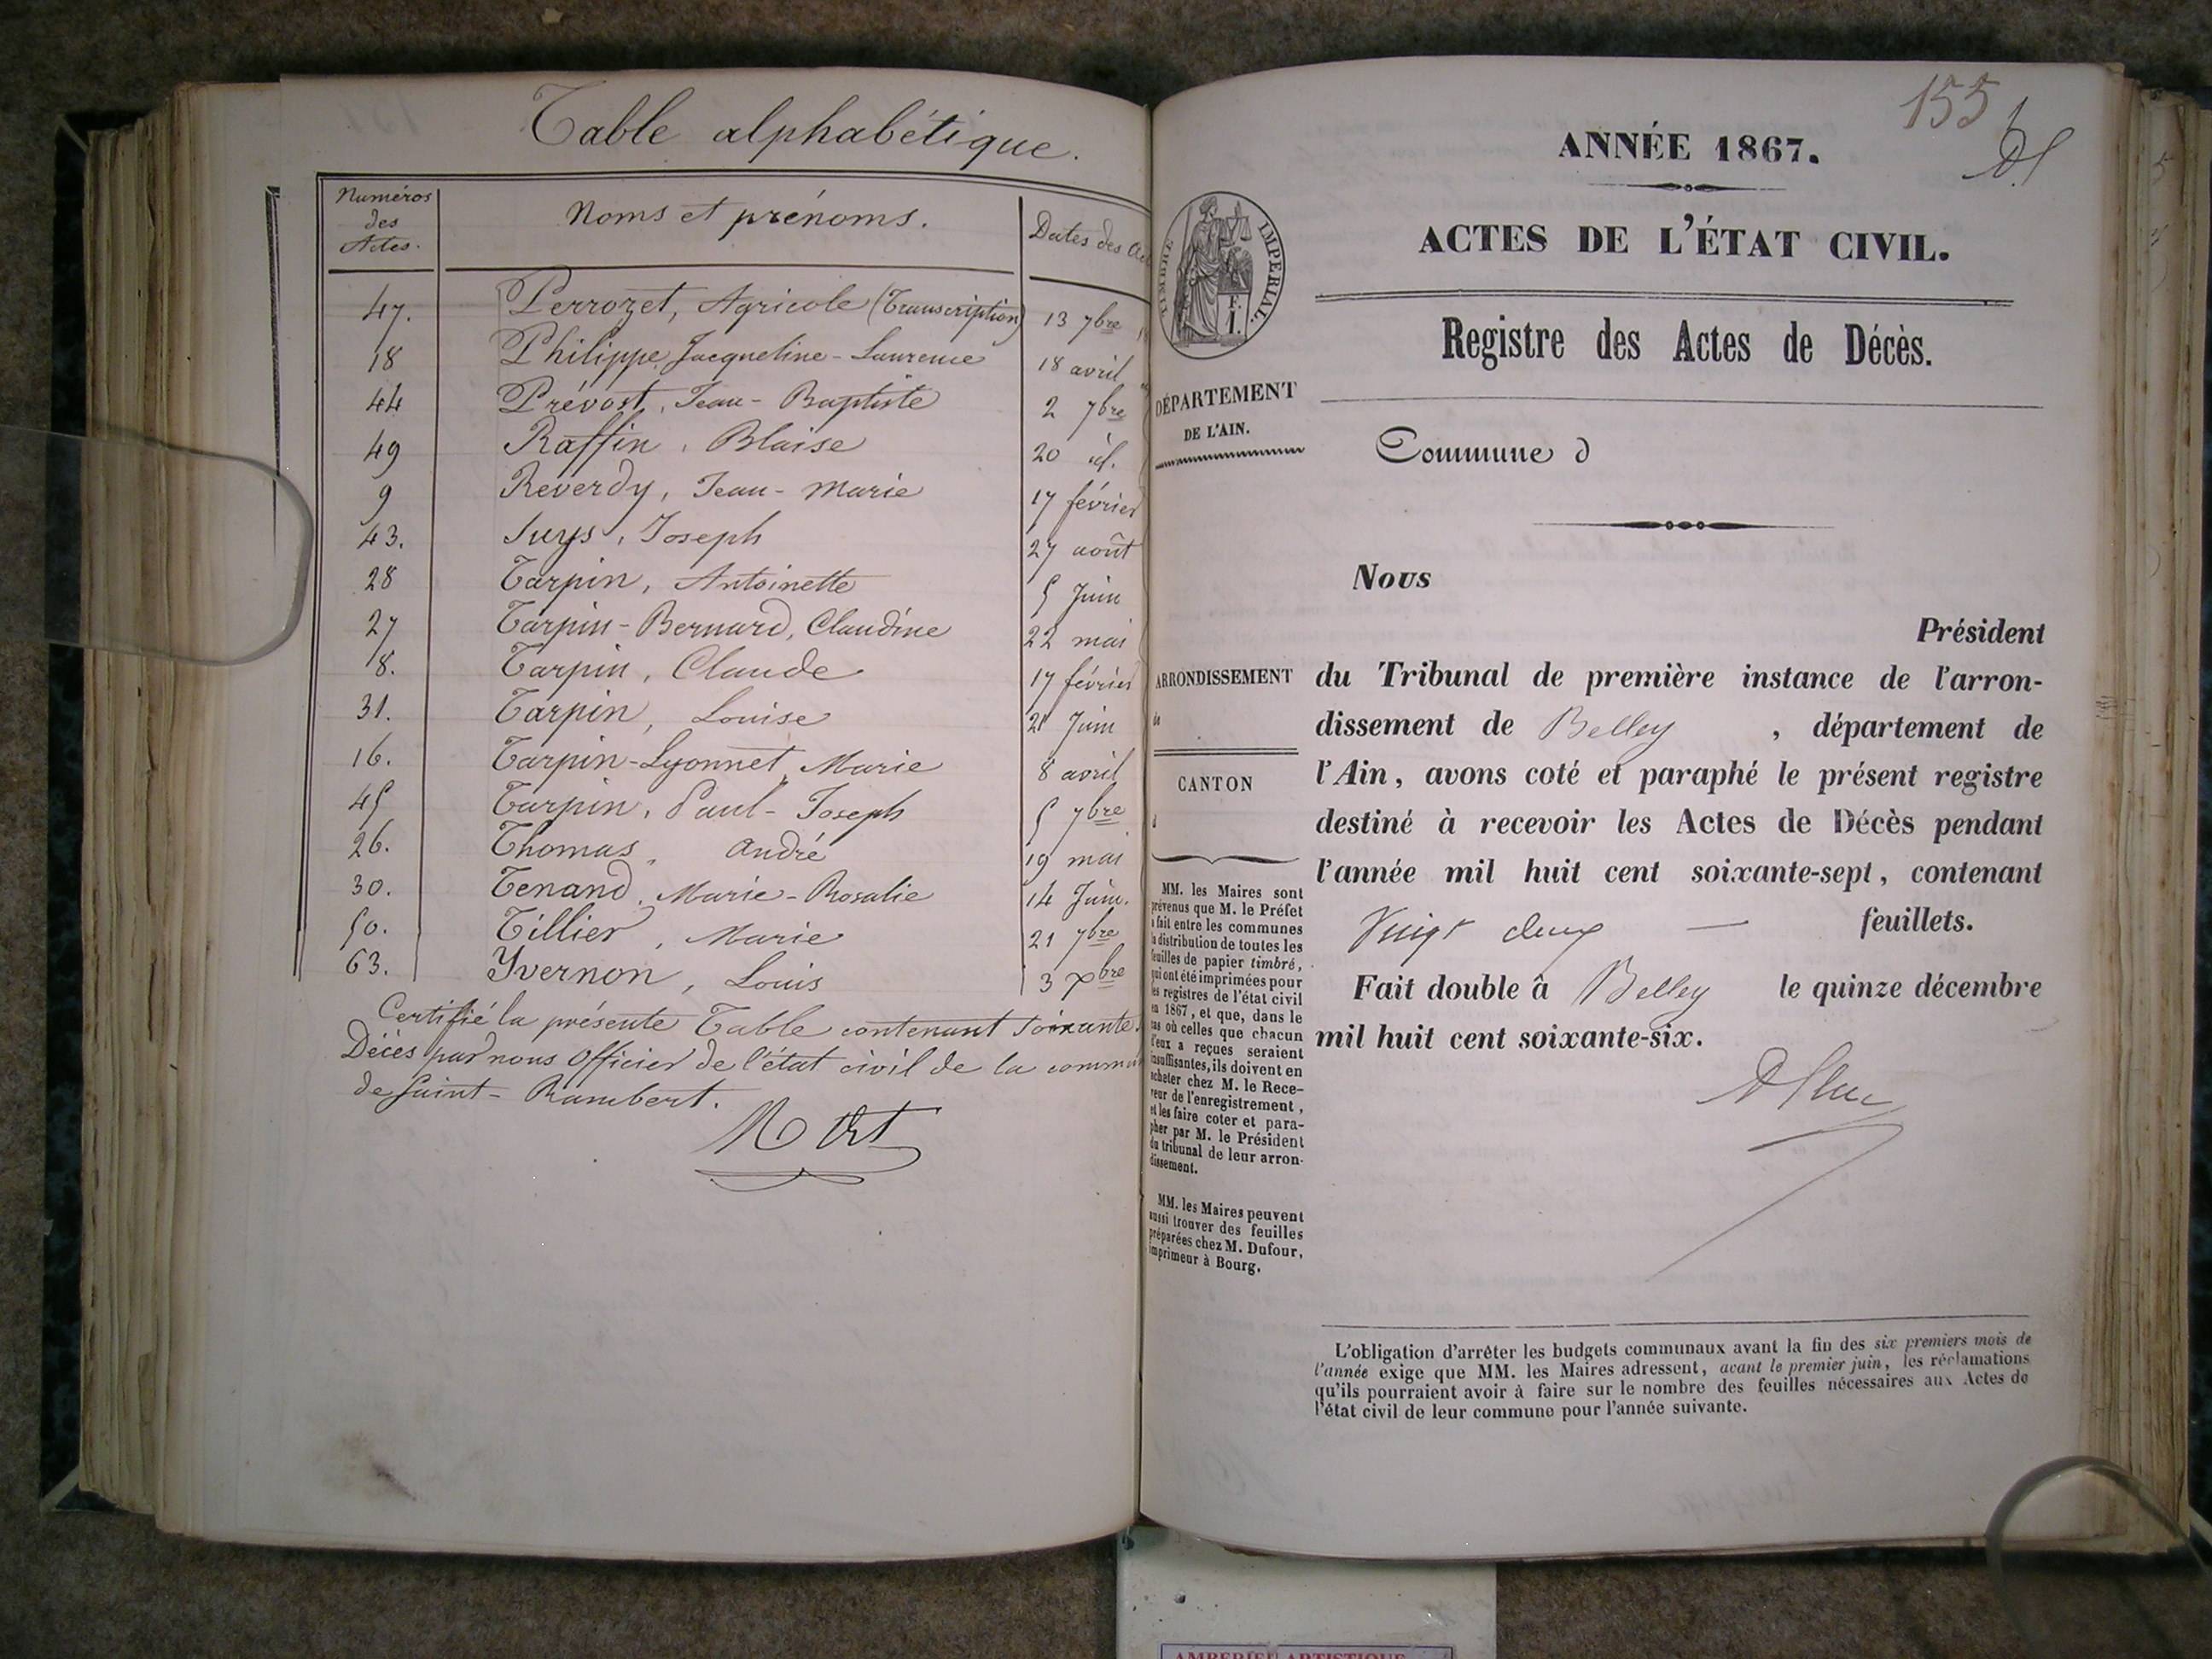 Table alphabétique.
Numéros des Actes. Noms et prénoms. Dates des
47. Perrozet, Agricole (Transcription) 13 7bre
18 Philippe, Jacqueline-Laurence 18 avril
44 Prévost, Jean-Baptiste 2 7bre
49 Raffin, Blaise 20 id.
9 Reverdy, Jean-Marie 17 février
43. Suys, Joseph 27 août
28 Tarpin, Antoinette 5 Juin
27 Tarpin-Bernard, Claudine 22 mai
8. Tarpin, Claude 17 février
31. Tarpin, Louise 21 Juin
16. Tarpin-Lyonnet, Marie 8 avril
45 Tarpin, Paul-Joseph 5 7bre
26. Thomas, André 19 mai
30. Tenand, Marie-Rosalie 14 Juin.
50. Tillier, Marie 21 7bre
63. Yvernon, Louis 3 Xbre
Certifié la présente Table contenant soixante
Décès par nous Officier de l'état civil de la
de Saint-Rambert.
155
ANNÉE 1867.
ACTES DE L'ÉTAT CIVIL.
TIMBRE IMPÉRIAL.
Registre des Actes de Décès.
DÉPARTEMENT
DE L'AIN.
Commune d
Nous
Président
ARRONDISSEMENT
de
CANTON
d
du Tribunal de première instance de l'arron-
dissement de Belley, département de
l'Ain, avons coté et paraphé le présent registre
destiné à recevoir les Actes de Décès pendant
l'année mil huit cent soixante-sept, contenant
Vingt deux — feuillets.
Fait double à Belley le quinze décembre
mil huit cent soixante-six.
MM. les Maires sont
prévenus que M. le Préfet
a fait entre les communes
la distribution de toutes les
feuilles de papier timbré,
qui ont été imprimées pour
les registres de l'état civil
en 1867, et que, dans le
cas où celles que chacun
d'eux a reçues seraient
insuffisantes, ils doivent en
acheter chez M. le Rece-
veur de l'enregistrement,
et les faire coter et para-
pher par M. le Président
du tribunal de leur arron-
dissement.
MM. les Maires peuvent
aussi trouver des feuilles
préparées chez M. Dufour,
imprimeur à Bourg.
L'obligation d'arrêter les budgets communaux avant la fin des six premiers mois de
l'année exige que MM. les Maires adressent, avant le premier juin, les réclamations
qu'ils pourraient avoir à faire sur le nombre des feuilles nécessaires aux Actes de
l'état civil de leur commune pour l'année suivante.
AMBERIEU ARTISTIQUE